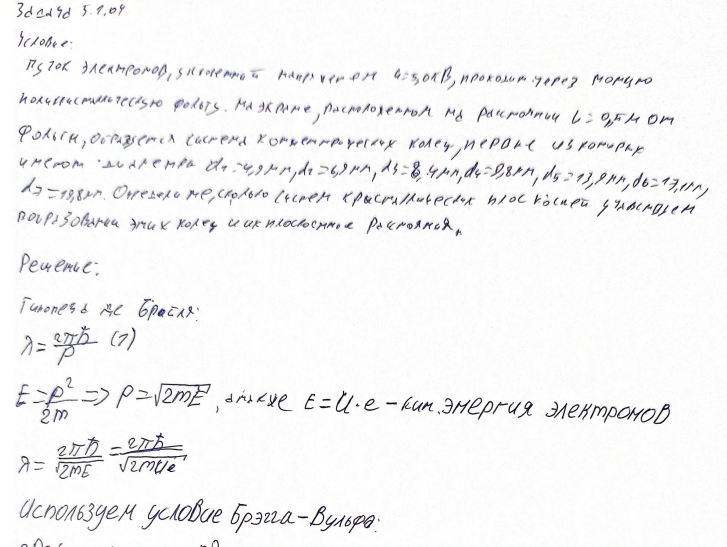 Задача 5.1.04
Условие:
Пучок электронов, ускоренный напряжением U=3,0кВ, проходит через тонкую
поликристаллическую фольгу. На экране, расположенном на расстоянии L=0,5м от
фольги, образуется система концентрических колец, первые из которых
имеют диаметра d₁=4,9мм, d₂=6,9мм, d₃=8,4мм, d₄=9,8мм, d₅=13,9мм, d₆=17,1мм,
d₇=19,8мм. сколько систем кристаллических плоскостей участвует
этих колец и их плоскостные расстояния.
Решение:
Гипотеза де Бройля:
λ=2πħ/p (1)
E=p²/2m => p=√2mE, E=U·e-кин. энергия электронов
λ=2πħ/√2mE=2πħ/√2mUe
Используем условие Брэгга-Вульфа: